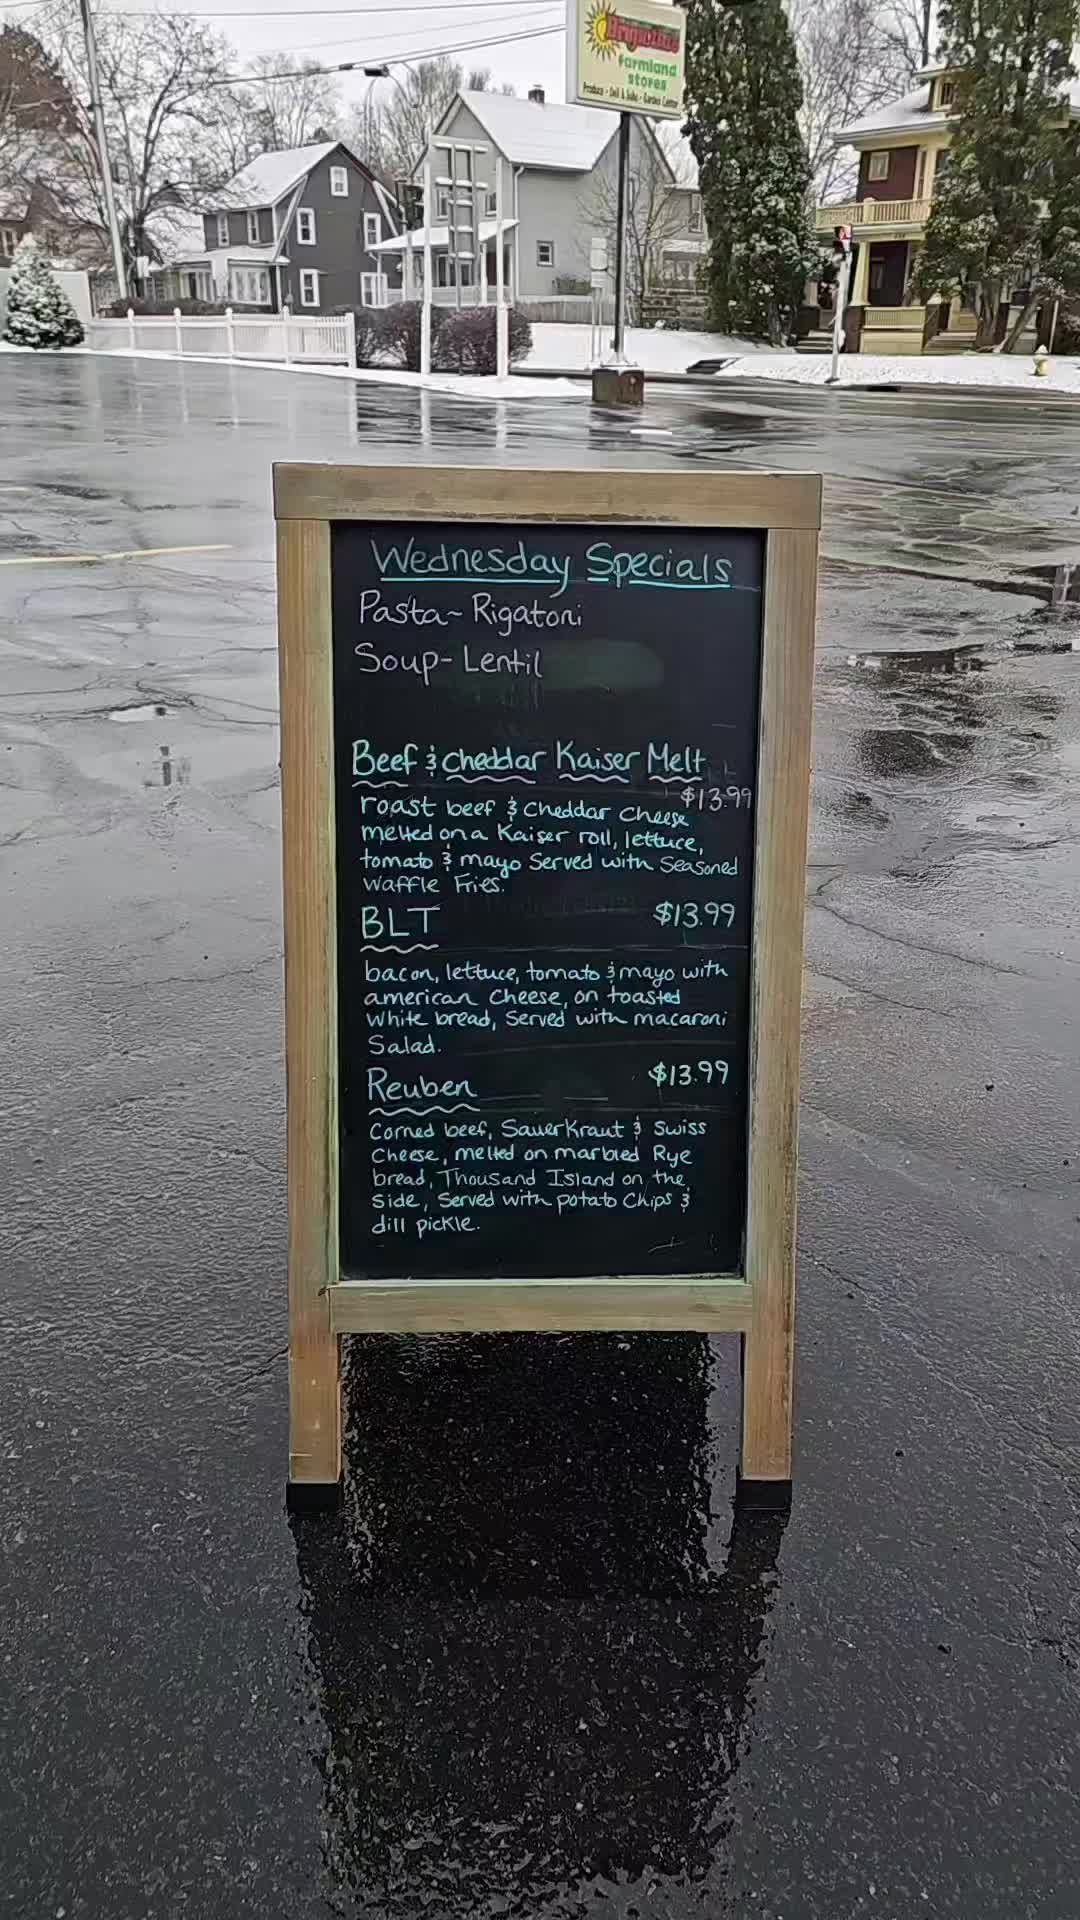 farmland
stores
Produce - Deli & Subs - Garden Center
Wednesday Specials
Pasta~ Rigatoni
Soup- Lentil
Beef & cheddar Kaiser Melt
$13.99
roast beef & cheddar cheese
melted on a Kaiser roll, lettuce,
tomato & mayo Served with Seasoned
Waffle Fries.
BLT $13.99
bacon, lettuce, tomato & mayo with
american cheese, on toasted
white bread, Served with macaroni
Salad.
Reuben $13.99
Corned beef, SauerKraut & Swiss
Cheese, melted on marbled Rye
bread, Thousand Island on the
Side, Served with potato Chips &
dill pickle.